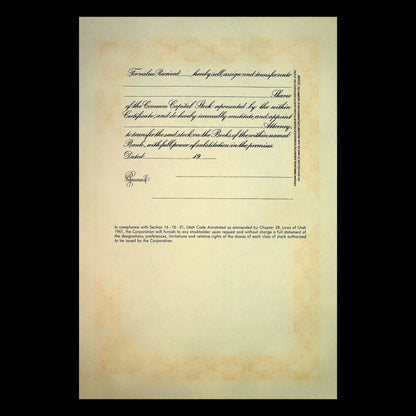 For value Received, ____ hereby sell, assign and transfer unto
Shares
of the Common Capital Stock represented by the within
Certificate, and do hereby irrevocably constitute and appoint
Attorney,
to transfer the said stock on the Books of the within named
Bank, with full power of substitution in the premises.
Dated, 19
In presence of
In compliance with Section 16 - 10 - 21, Utah Code Annotated as ammended by Chapter 28, Laws of Utah
1961, the Corporation will furnish to any stockholder upon request and without charge a full statement of
the designations, preferences, limitations and relative rights of the shares of each class of stock authorized
to be issued by the Corporation.